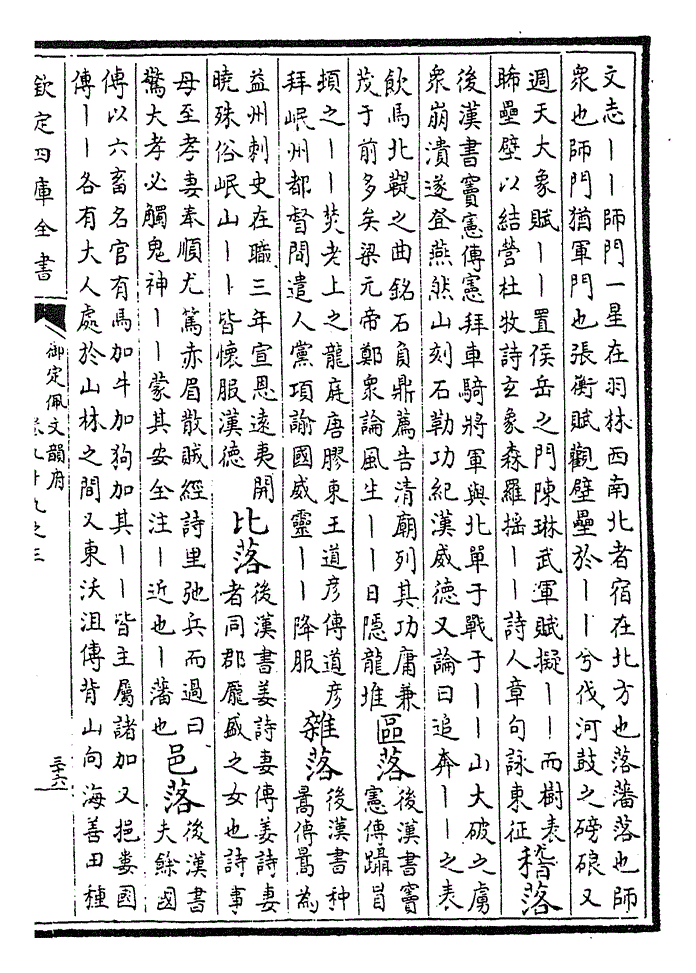 文志丨丨師門一星在羽林西南北者宿在北方也落藩落也師
衆也師門猶軍門也張衡賦觀壁壘於丨丨兮伐河鼓之磅硠又
週天大象賦丨丨置侯岳之門陳琳武軍賦擬丨丨而樹表
睎壘壁以結營杜牧詩玄象森羅揺丨丨詩人章句詠東征
稽落
後漢書竇憲傳憲拜車騎將軍與北單于戰于丨丨山大破之虜
衆崩潰遂登燕然山刻石勒功紀漢威德又論曰追奔丨丨之表
飲馬北鞮之曲銘石負鼎薦告清廟列其功庸兼
茂于前多矣梁元帝鄭衆論風生丨丨日隱龍堆
區落
後漢書竇
憲傳躡冒
頓之丨丨焚老上之龍庭唐膠東王道彥傳道彥
拜岷州都督間遣人黨項諭國威靈丨丨降服
雜落
後漢書种
暠傳暠為
益州刺史在職三年宣恩遠夷開
曉殊俗岷山丨丨皆懷服漢德
比落
後漢書姜詩妻傳姜詩妻
者同郡龐盛之女也詩事
母至孝妻奉順尤篤赤眉散賊經詩里弛兵而過曰
驚大孝必觸鬼神丨丨蒙其安全注丨近也丨藩也
邑落
後漢書
夫餘國
傳以六畜名官有馬加牛加狗加其丨丨皆主屬諸加又挹婁國
傳丨丨各有大人處於山林之間又東沃沮傳背山向海善田種
欽定四庫全書
御定佩文韻府
卷九十九之三
三十六